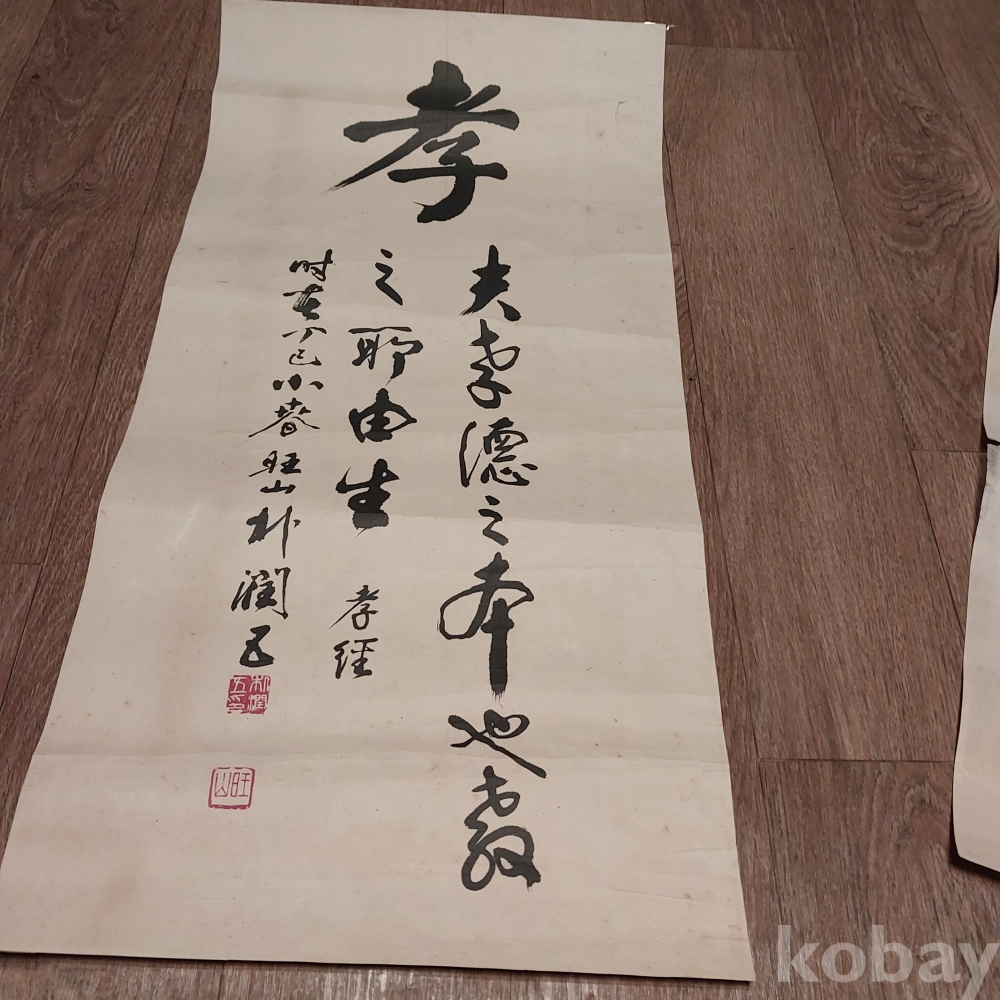 孝
夫孝德之本也敎
之所由生
孝經
時在丁巳小春旺山朴潤五
朴潤五印
旺山
kobay